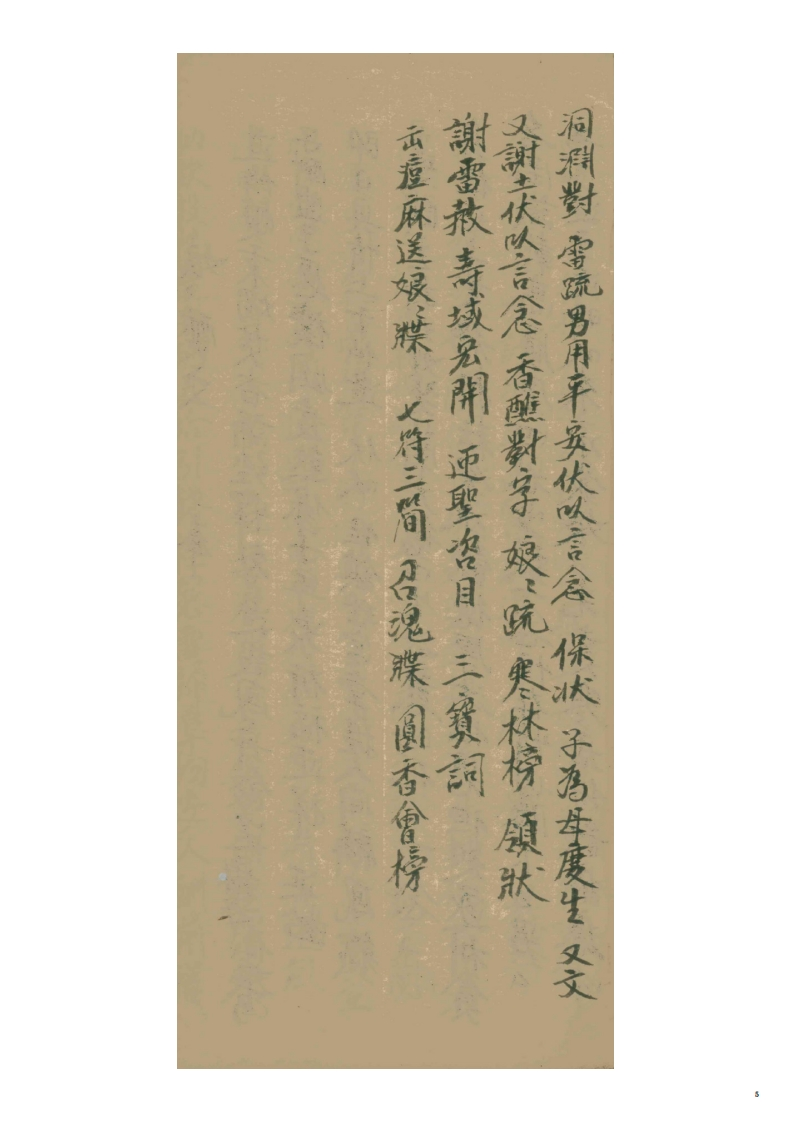 洞淵對 雷疏男用平安伏以言念 保状 子為母度生 又文
又謝土伏以言念 香醮對字 娘〻疏 寒林榜 領狀
謝雷赦 壽域宏開 迎聖咨目 三寶詞
出痘麻送娘〻牒 七符三簡 召魂牒 圓香會榜
5